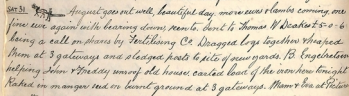 SAT 31 August goes out well, beautiful day, more ewes & lambs coming, one
fine ewe again with bearing down, needs. Sent to Thomas W Deaker £5-0-6
being a call on shares by Fertilising Co. Dragged logs together & heaped
them at 3 gateways and sledged posts to site of new yards. B. Engelbretson
helping John & Freddy on roof of old house, carted load of the iron home tonight
Raked in mangel seed on burnt ground at 3 gateways. Mam & Eva at Pictures